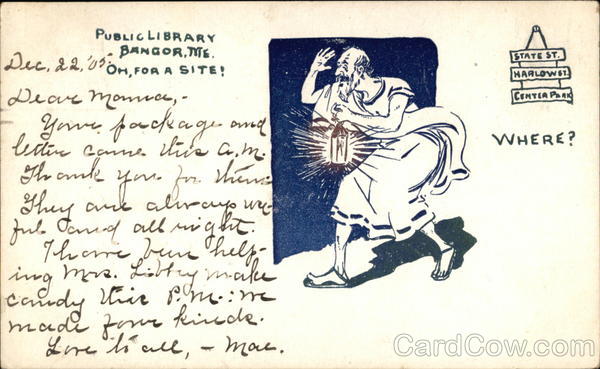 PUBLIC LIBRARY
BANGOR, ME.
OH, FOR A SITE!
STATE ST.
HARLOW ST.
CENTER PARK
WHERE?
Dec. 22, '05-
Dear Mamma,-
Your package and
letter came this a.m.
Thank you for them.
They are always use
ful and all right.
I have been help-
ing Mrs. Libbey make
candy this P.M.: we
made four kinds.
Love to all, - Mae.
CardCow.com